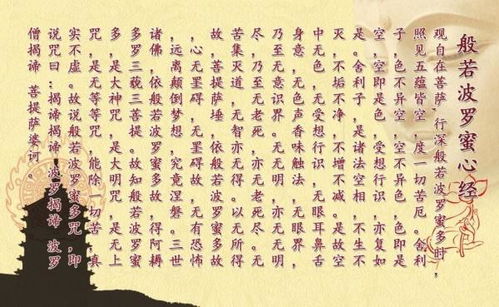 般若波罗蜜心经
观自在菩萨，行深般若波罗蜜多时，
照见五蕴皆空，度一切苦厄。舍利
子，色不异空，空不异色，色即是
空，空即是色，受想行识，亦复如
是。舍利子，是诸法空相，不生不
灭，不垢不净，不增不减。是故空
中无色，无受想行识，无眼耳鼻舌
身意，无色声香味触法，无眼界，
乃至无意识界。无无明，亦无无明
尽，乃至无老死，亦无老死尽。无
苦集灭道，无智亦无得。以无所得
故，菩提萨埵，依般若波罗蜜多故
，心无罣碍，无罣碍故，无有恐怖
，远离颠倒梦想，究竟涅磐。三世
诸佛，依般若波罗蜜多故，得阿耨
多罗三藐三菩提。故知般若波罗蜜
多，是大神咒，是大明咒，是无上
咒，是无等等咒，能除一切苦，真
实不虚。故说般若波罗蜜多咒，即
说咒曰：揭谛揭谛 波罗揭谛 波罗
僧揭谛 菩提萨婆诃